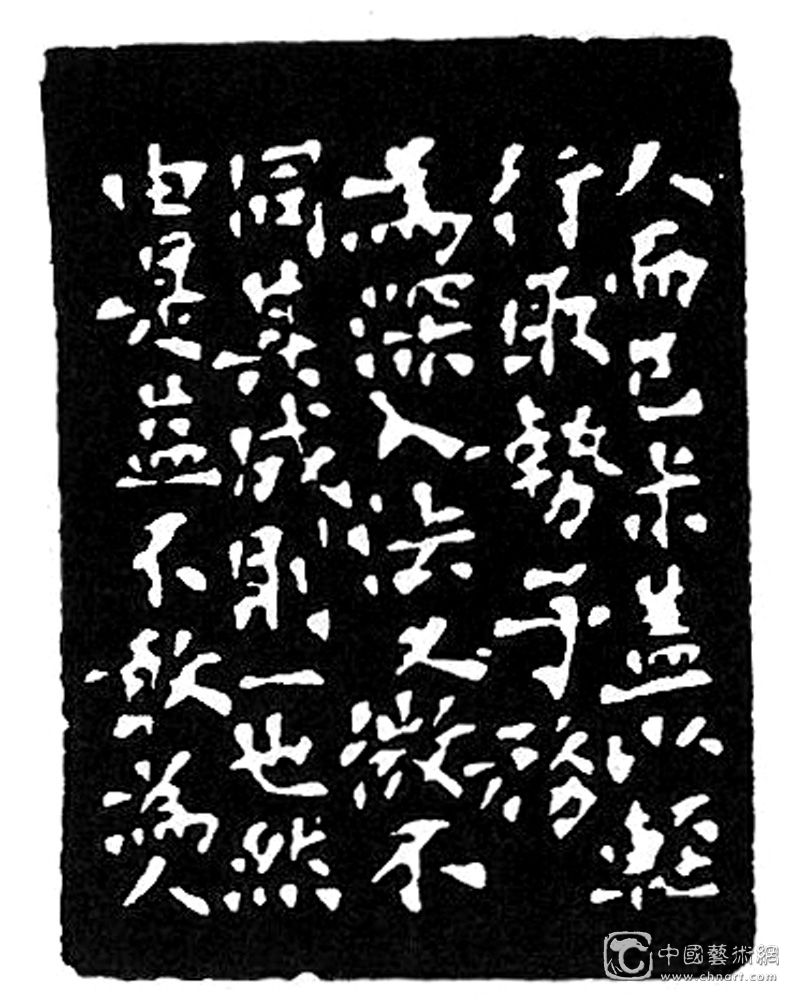 人而已蓋以輕
行取勢予務
為深入法又微不
同其成則一也然
由是益不敢為人
中國藝術網
www.chnart.com